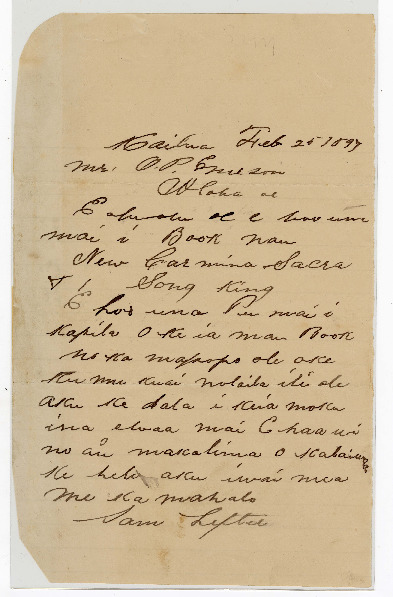 Kailua Feb 25 1897
Mr. O.P. Emeson
Aloha oe
E oluolu oe e hoouna
mai i Book nau
New Carmina Sacra
& 1 Song King
E hoouna Pu mai i
kapila O ke ia mau Book
no ka maopopo ole o ke
kumu kuai nolaila ile ole
aku ke dala i keia moku
ina e loaa mai E haawi
no au ma kalima O
ke hele aku iwai nea
me ka mahalo
Sam